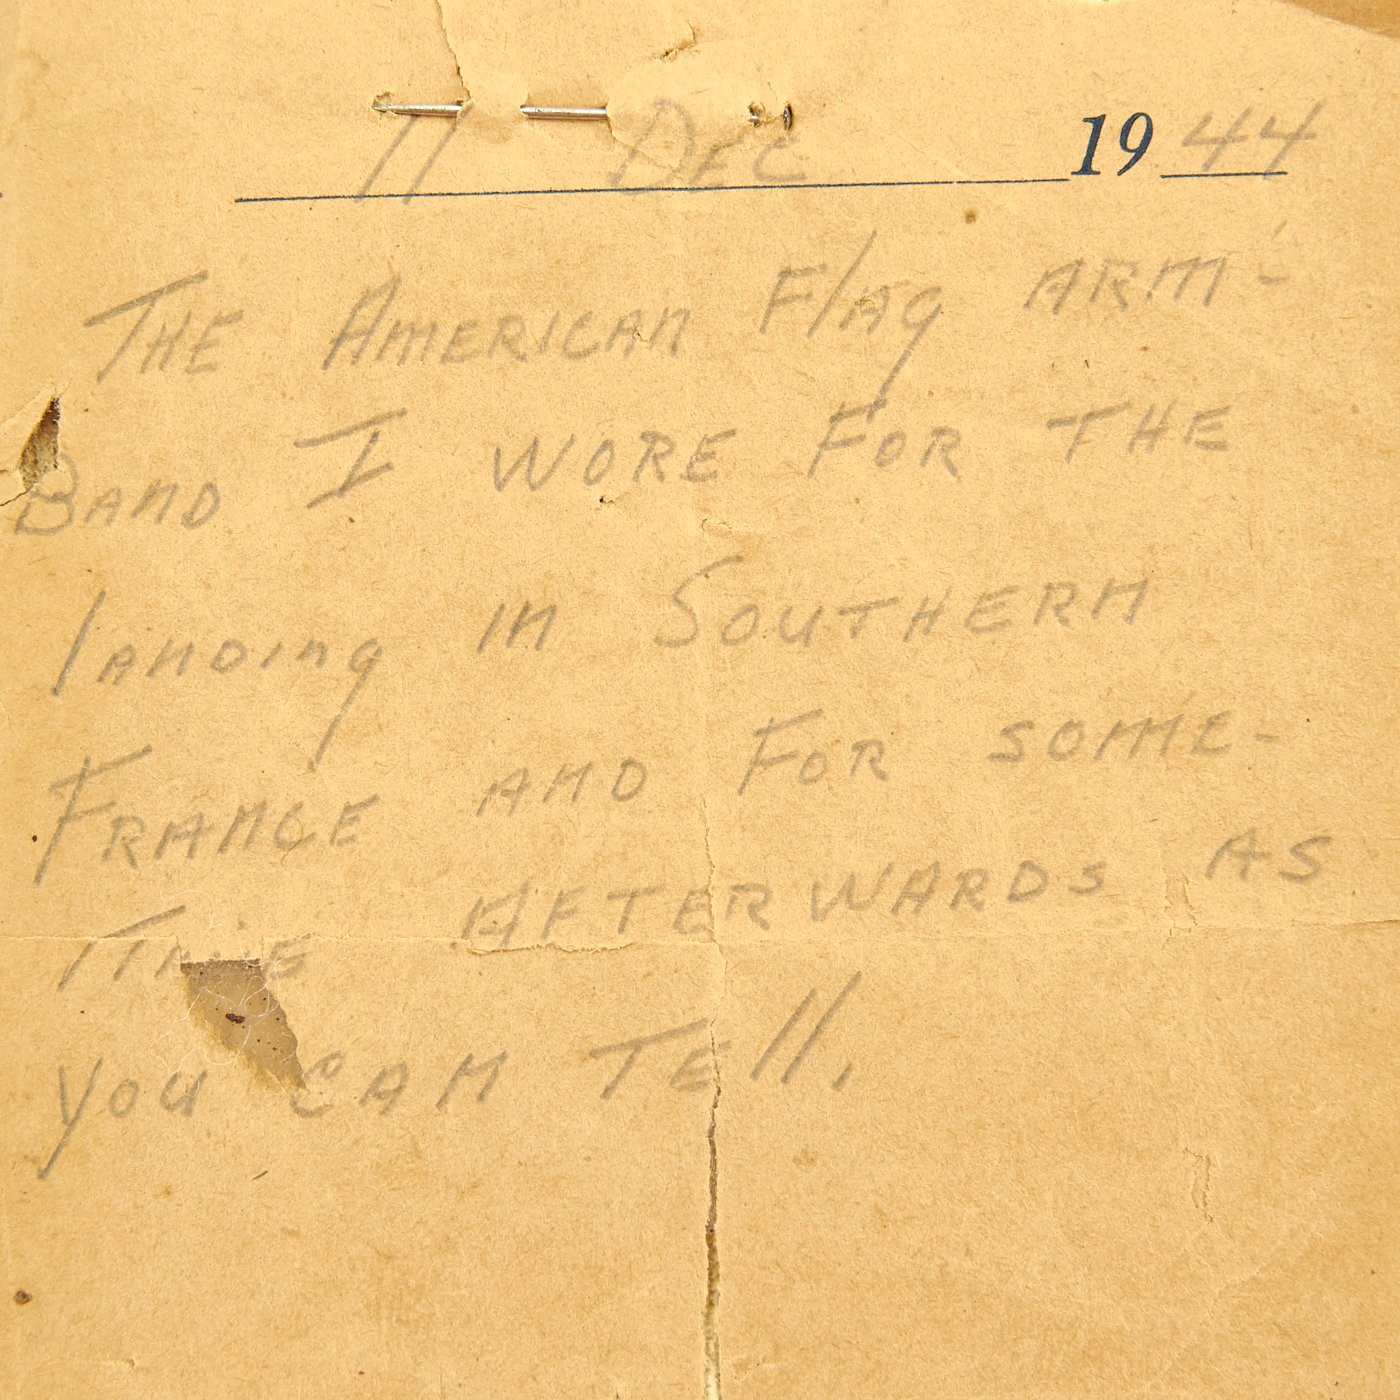 11 Dec 1944
The American Flag arm-
Band I wore for the
landing in Southern
France and for some-
time afterwards as
you can tell.